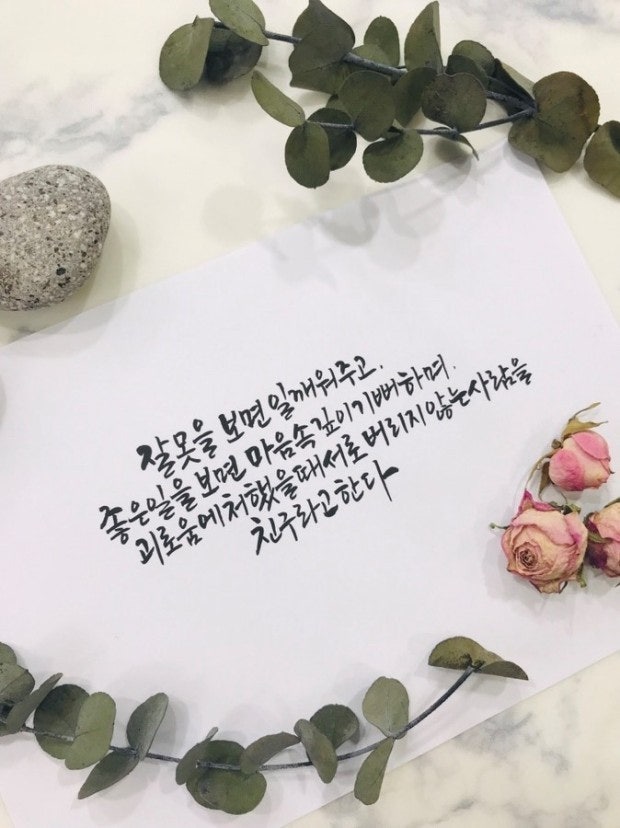 잘못을 보면 일깨워주고,
좋은일을 보면 마음속 깊이 기뻐하며.
괴로움에 처했을때 서로 버리지 않는 사람을
친구라고 한다